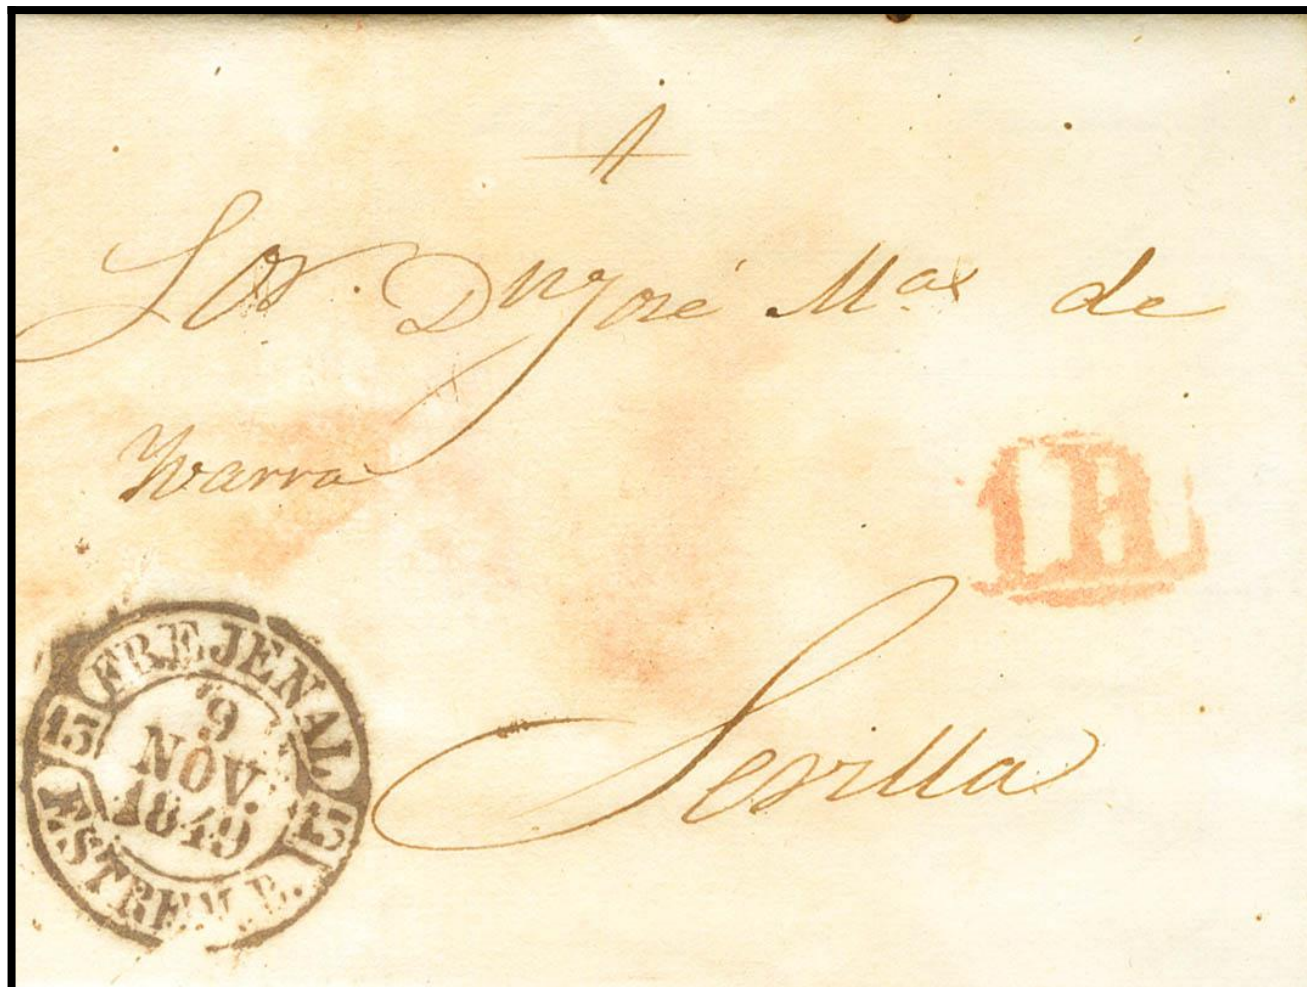 Sor. Dn José Ma de
Ybarra
1 R
Sevilla
FREJENAL
9
NOV.
1849
ESTREM. B.